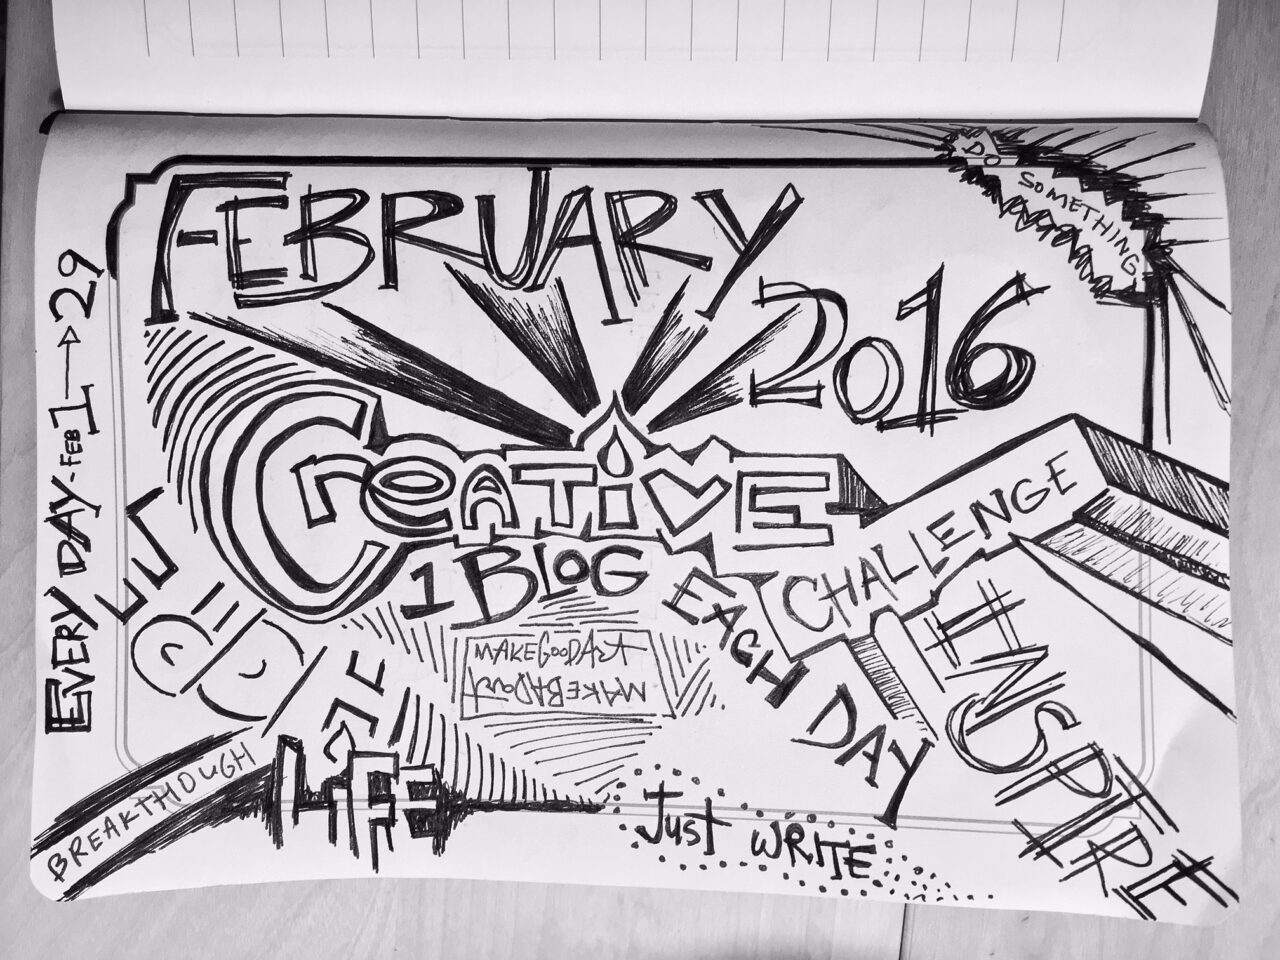 FEBRUARY
2016
DO SOMETHING
EVERY DAY - FEB 1 → 29
CREATiVE
CHALLENGE
1 BLOG
EACH DAY
MAKE GOOD ART
MAKE BAD ART
INSPIRE
LIFE
BREAKTHOUGH
JUST WRITE